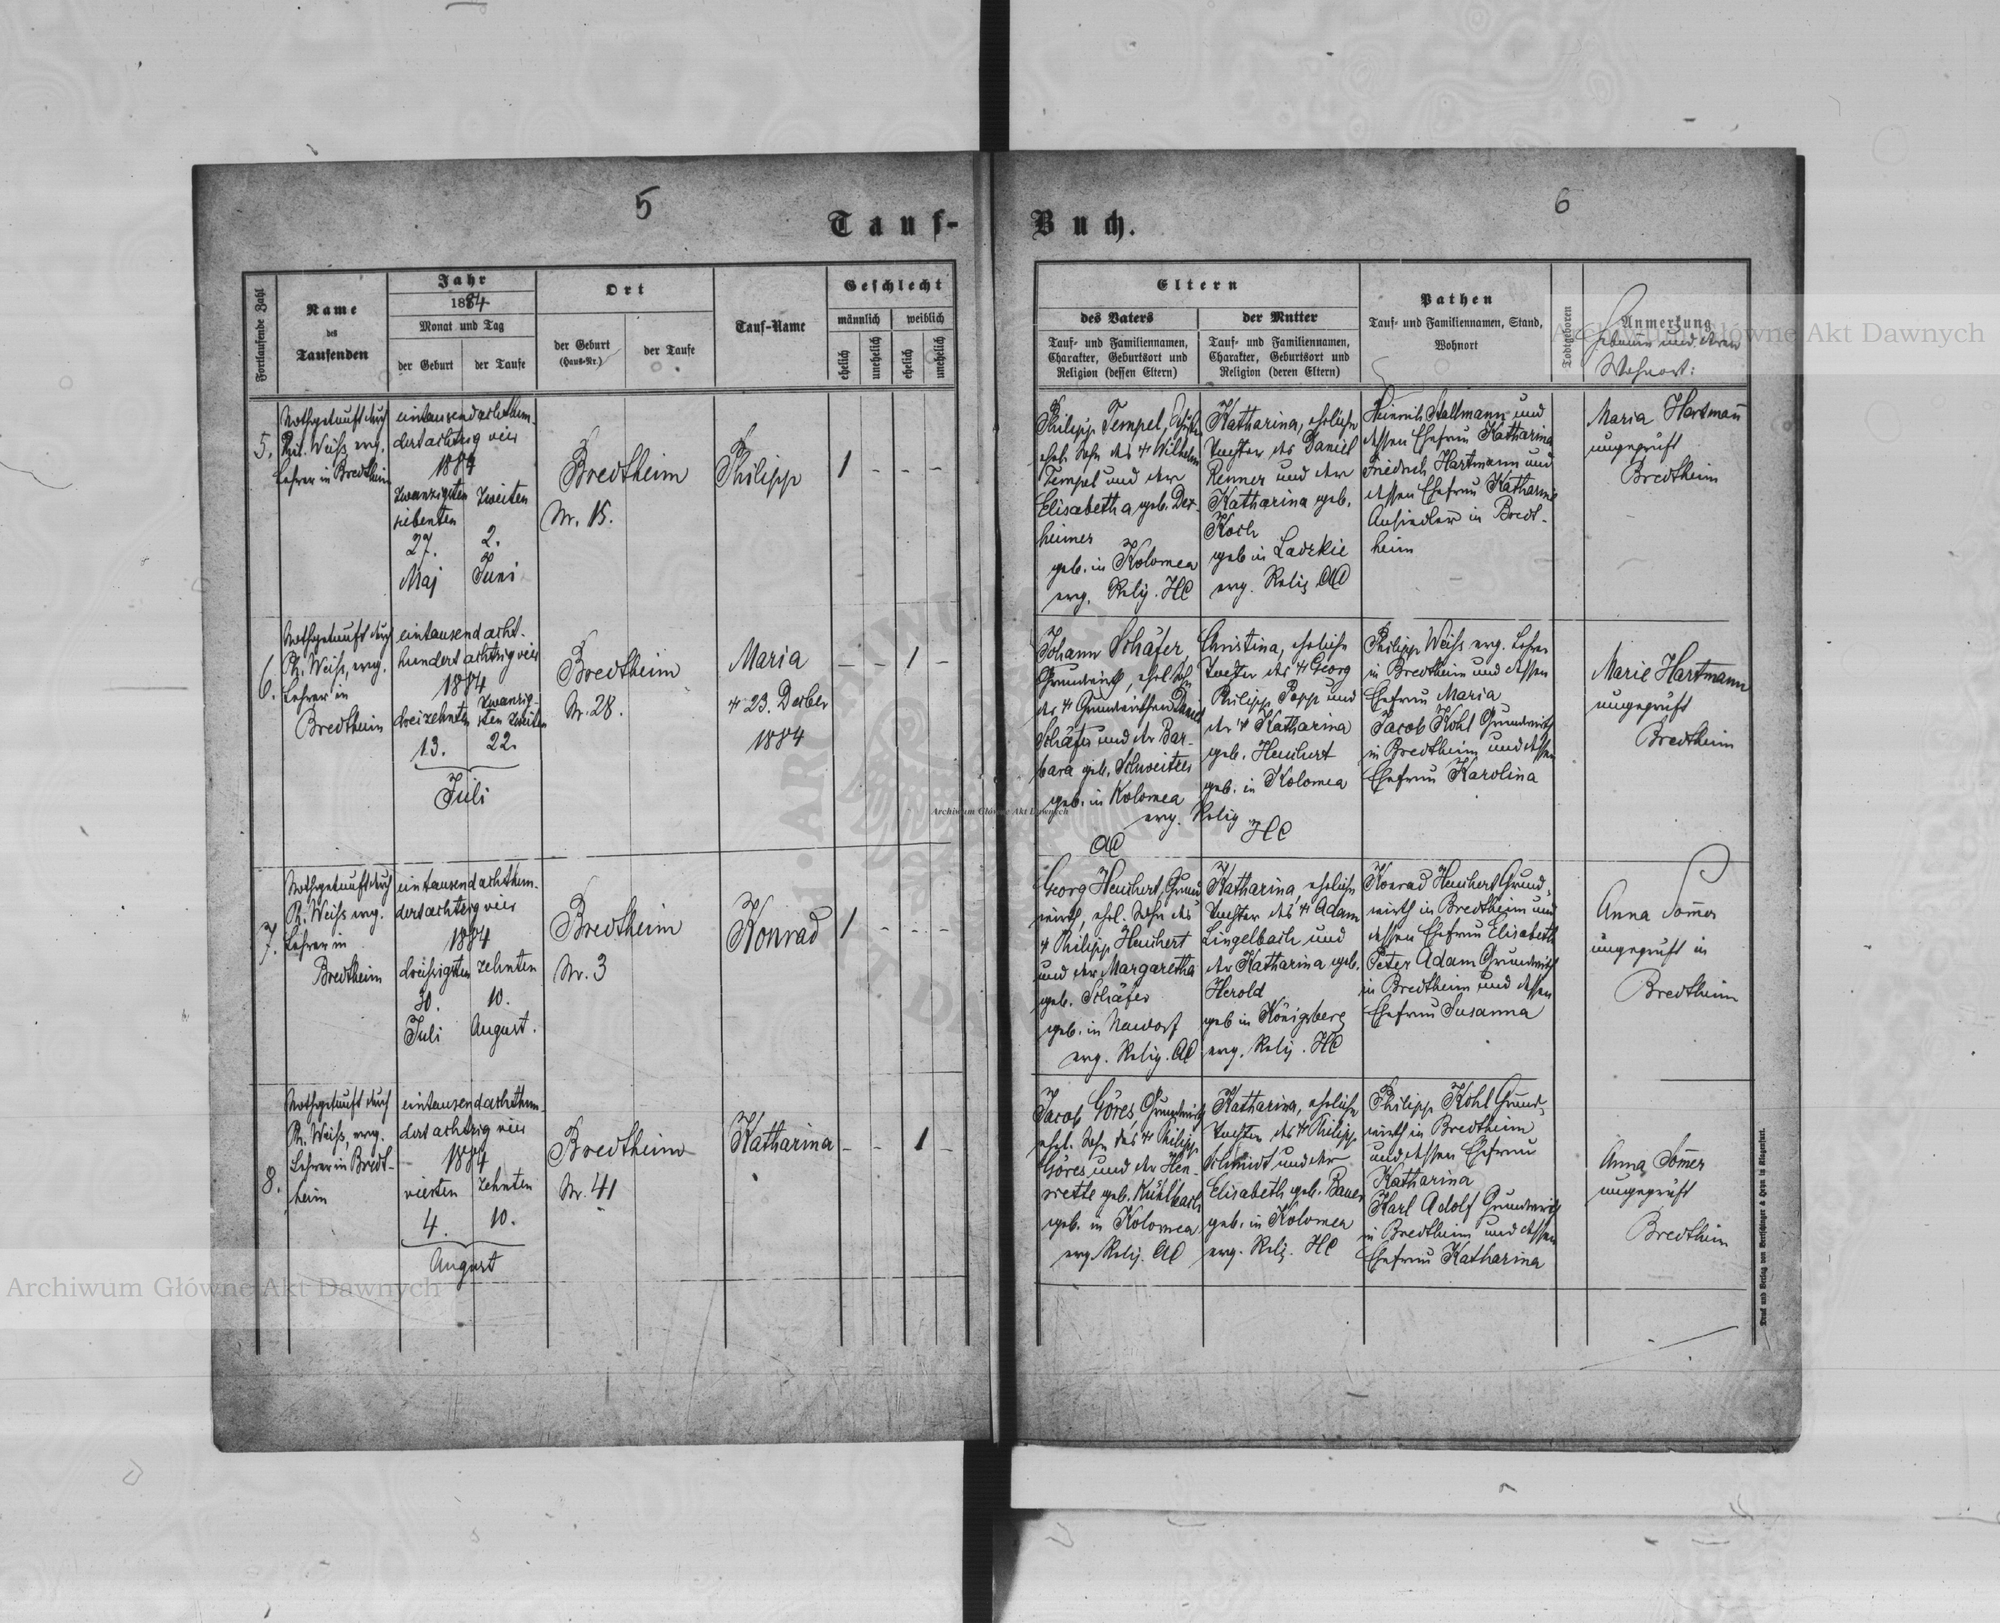 5
6
Tauf-
Buch.
Fortlaufende Zahl
Name
des
Taufenden
Jahr
1884
Monat und Tag
der Geburt
der Taufe
Ort
der Geburt
(Haus-Nr.)
der Taufe
Tauf-Name
Geschlecht
männlich
weiblich
ehelich
unehelich
ehelich
unehelich
Eltern
des Vaters
Tauf- und Familiennamen,
Charakter, Geburtsort und
Religion (dessen Eltern)
der Mutter
Tauf- und Familiennamen,
Charakter, Geburtsort und
Religion (deren Eltern)
Pathen
Tauf- und Familiennamen, Stand,
Wohnort
Todtgeboren
Anmerkung
Hebamme und deren
Wohnort:
5.
Nothgetauft durch
Weiß evg.
Lehrer in Bredtheim
eintausendachthun-
dertachtzig vier
1884
zwanzigsten
siebenten
27.
Maj
zweiten
2.
Juni
Bredtheim
Nr. 15.
Philipp
1 - - -
Philipp Tempel,
ehel. Sohn des + Wilhelm
Tempel und der
Elisabetha geb. Der-
heimer
geb. in Kolomea
evg. Relig. HC
Katharina, eheliche
Tochter des Daniel
Renner und der
Katharina geb.
Koch
geb in Ladzkie
evg. Relig AC
Heinrich Stallmann und
dessen Ehefrau Katharina
Friedrich Hartmann und
dessen Ehefrau Katharina
Ansiedler in Bredt-
heim
Maria Hartmañ
ungeprüft
Bredtheim
6.
Nothgetauft durch
Ph. Weiß, evg.
Lehrer in
Bredtheim
eintausend acht-
hundert achtzig vier
1884
dreizehnten
13.
zwanzig-
sten zweiten
22.
Juli
Bredtheim
Nr. 28.
Maria
+ 23. Dezber
1884
- - 1 -
Johann Schäfer,
Grundwirth, ehel. Sohn
des + Grundwirthen Daniel
Schäfer und der Bar-
bara geb. Schweitzer
geb. in Kolomea
evg. Relig
AC
Christina, eheliche
Tochter des + Georg
Philipp Popp und
der + Katharina
geb. Heuchert
geb. in Kolomea
HC
Philipp Weiß evg. Lehrer
in Bredtheim und dessen
Ehefrau Maria
Jacob Kohl Grundwirth
in Bredtheim und dessen
Ehefrau Karolina
Marie Hartmann
ungeprüft
Bredtheim
7.
Nothgetauft durch
Ph. Weiß evg.
Lehrer in
Bredtheim
eintausend achthun-
dertachtzig vier
1884
dreißigsten
30.
Juli
zehnten
10.
August.
Bredtheim
Nr. 3
Konrad
1 - - -
Georg Heuchert, Grund-
wirth, ehel. Sohn des
+ Philipp Heuchert
und der Margaretha
geb. Schäfer
geb. in Neudorf
evg. Relig. AC
Katharina, eheliche
Tochter des + Adam
Lingelbach und
der Katharina geb.
Herold
geb in Königsberg
evg. Relig. HC
Konrad Heuchert Grund-
wirth in Bredtheim und
dessen Ehefrau Elisabeth
Peter Adam Grundwirth
in Bredtheim und dessen
Ehefrau Susanna
Anna Som̄er
ungeprüft in
Bredtheim
8.
Nothgetauft durch
Ph. Weiß, evg.
Lehrer in Bredt-
heim
eintausendachthun-
dert achtzig vier
1884
vierten
4.
zehnten
10.
August
Bredtheim
Nr. 41
Katharina
- - 1 -
Jacob Göres, Grundwirth
ehel. Sohn des + Philipp
Göres und der Hen-
riette geb. Kühlbach
geb. in Kolomea
evg. Relig. AC
Katharina, eheliche
Tochter des + Philipp
Schmidt und der
Elisabeth geb. Bauer
geb. in Kolomea
evg. Relig. HC
Philipp Kohl Grund-
wirth in Bredtheim
und dessen Ehefrau
Katharina
Karl Adolf Grundwirth
in Bredtheim und dessen
Ehefrau Katharina
Anna Som̄er
ungeprüft
Bredtheim
Druck und Verlag von Bertschinger & Heyn in Klagenfurt.
Archiwum Główne Akt Dawnych
Archiwum Główne Akt Dawnych
Archiwum Główne Akt Dawnych